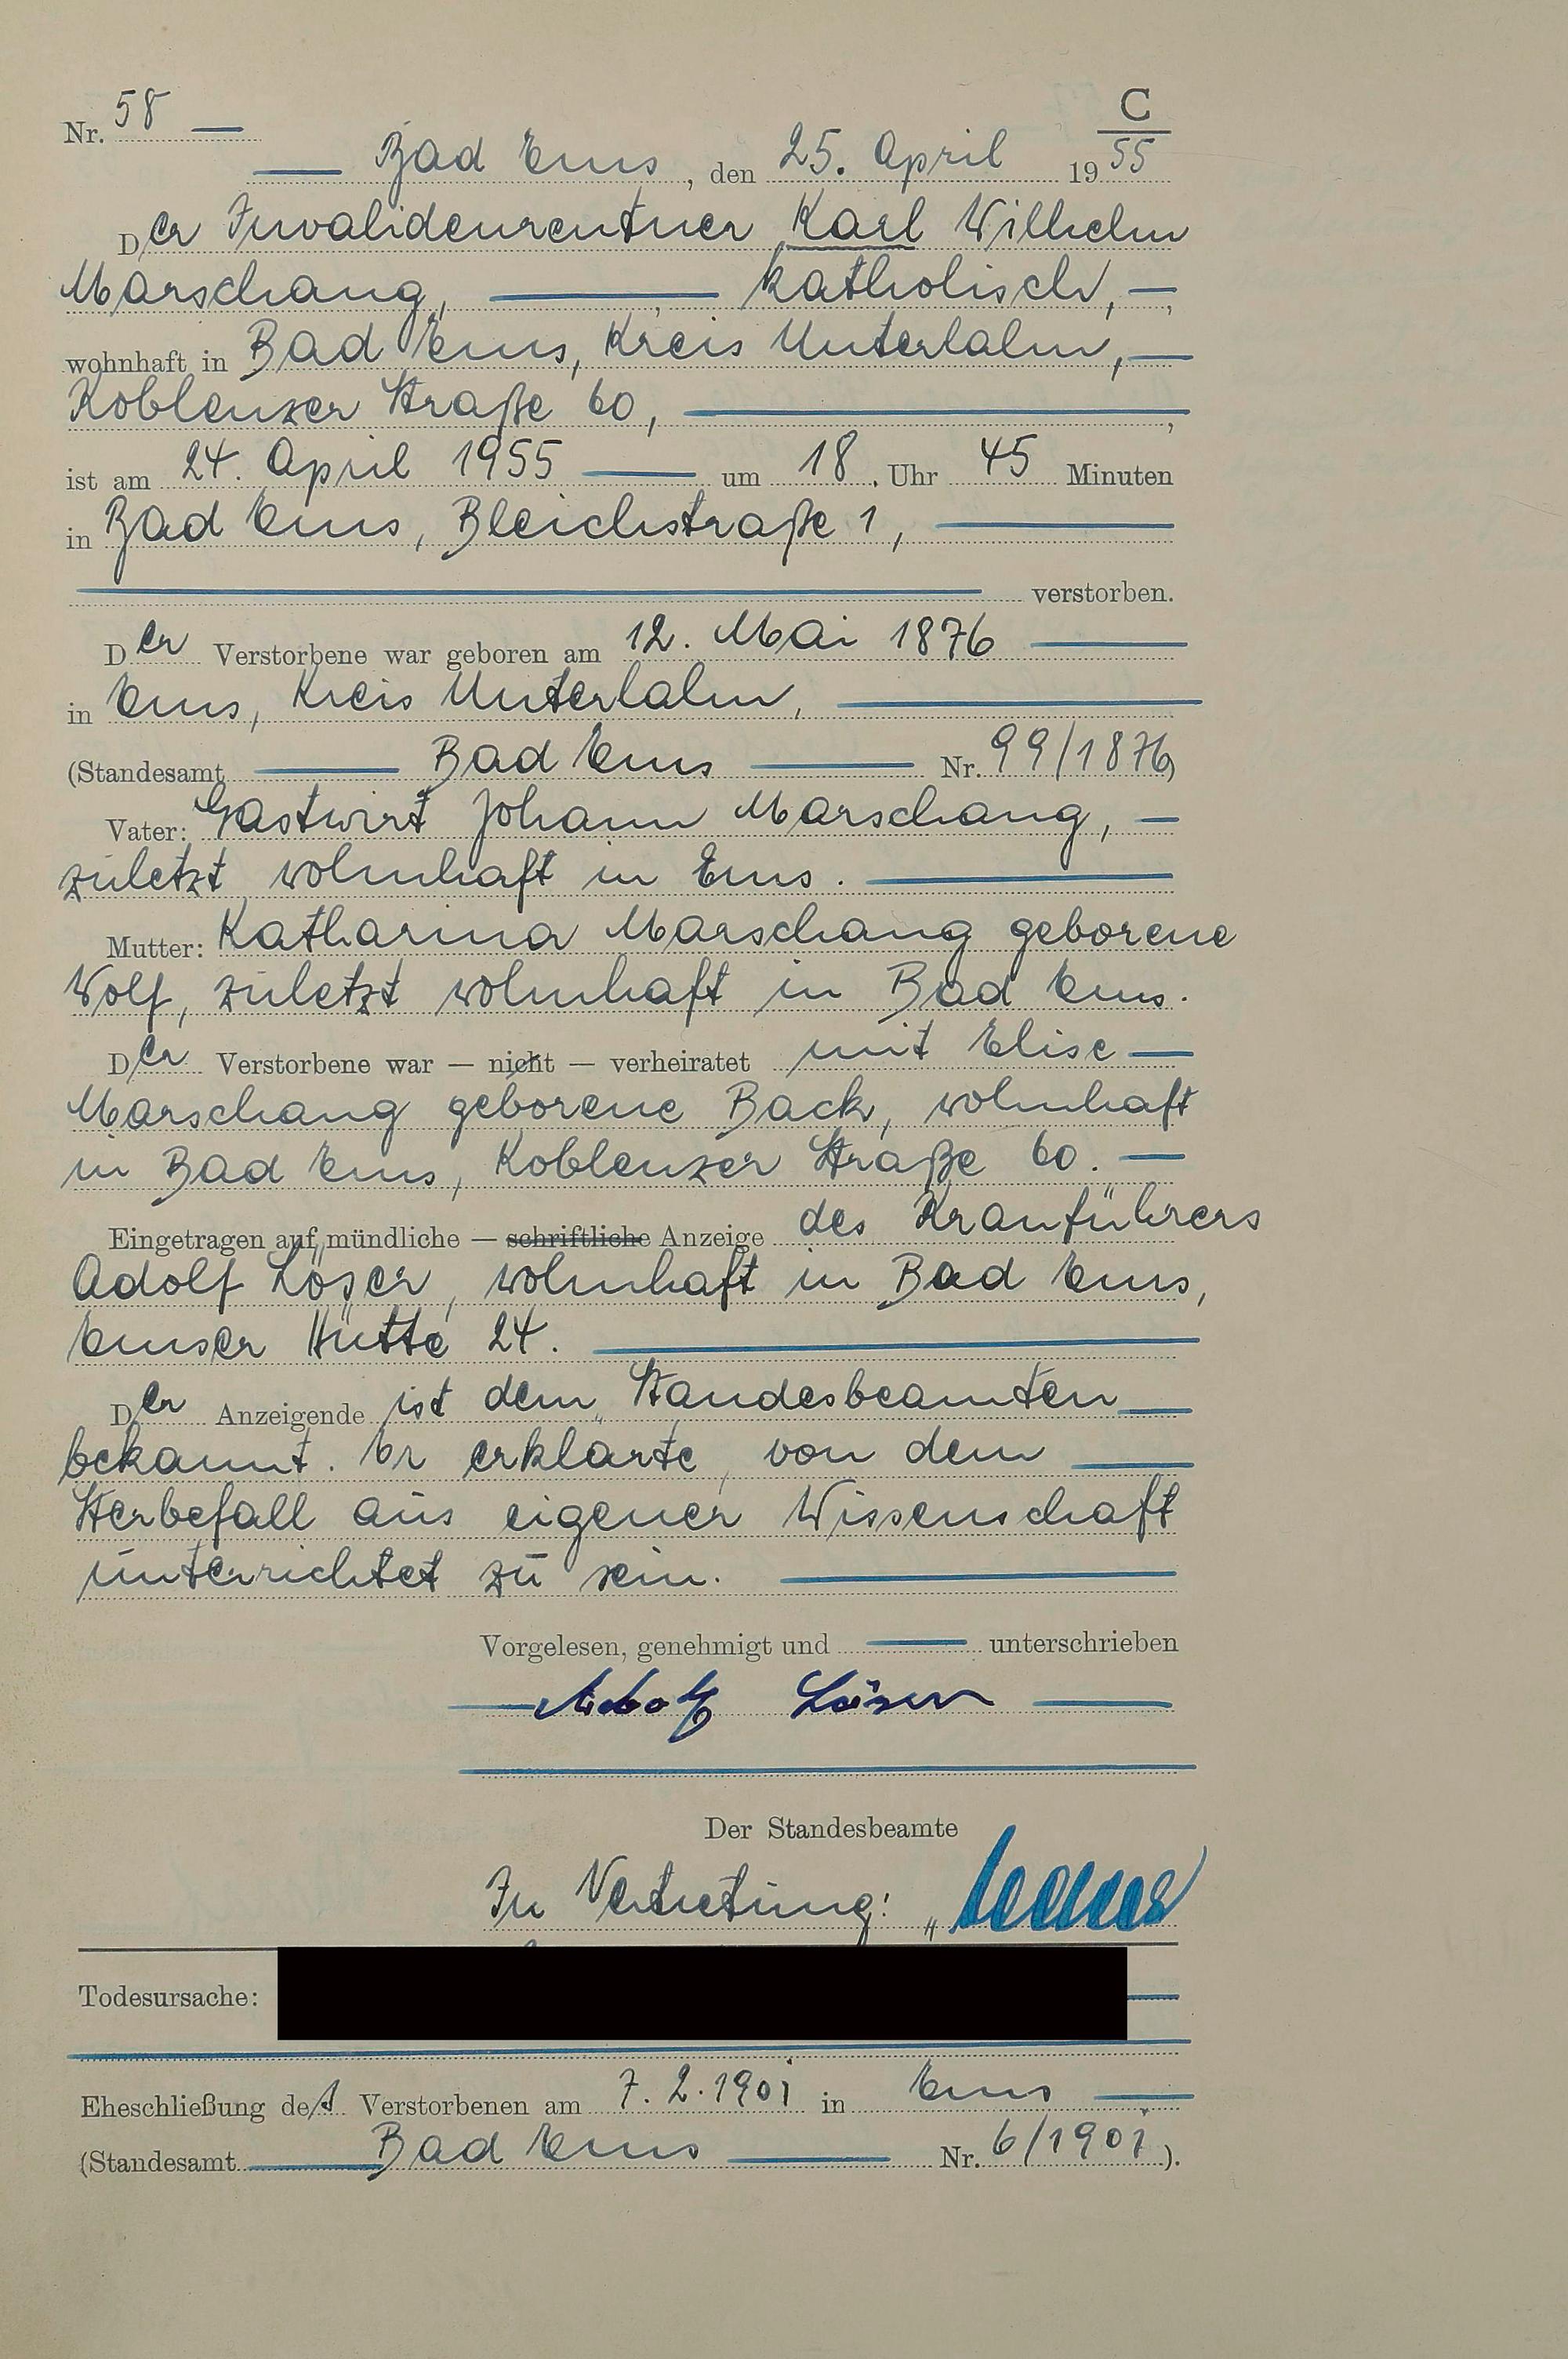 C
Nr. 58 —
— Bad Ems, den 25. April 1955
Der Invalidenrentner Karl Wilhelm
Marschang, — katholisch, —
wohnhaft in Bad Ems, Kreis Unterlahn, —
Koblenzer Straße 60, —
ist am 24. April 1955 — um 18 Uhr 45 Minuten
in Bad Ems, Bleichstraße 1, —
— verstorben.
Der Verstorbene war geboren am 12. Mai 1876 —
in Ems, Kreis Unterlahn, —
(Standesamt — Bad Ems — Nr. 99/1876)
Vater: Gastwirt Johann Marschang, —
zuletzt wohnhaft in Ems. —
Mutter: Katharina Marschang geborene
Wolf, zuletzt wohnhaft in Bad Ems.
Der Verstorbene war — nicht — verheiratet mit Elise —
Marschang geborene Back, wohnhaft
in Bad Ems, Koblenzer Straße 60. —
Eingetragen auf mündliche — schriftliche Anzeige des Kranführers
Adolf Löser, wohnhaft in Bad Ems,
Emser Hütte 24. —
Der Anzeigende ist dem Standesbeamten —
bekannt. Er erklärte, von dem —
Sterbefall aus eigener Wissenschaft
unterrichtet zu sein. —
Vorgelesen, genehmigt und — unterschrieben
— Adolf Löser —
Der Standesbeamte
In Vertretung:
Todesursache:
Eheschließung des Verstorbenen am 7.2.1901 in Ems —
(Standesamt — Bad Ems — Nr. 6/1901).